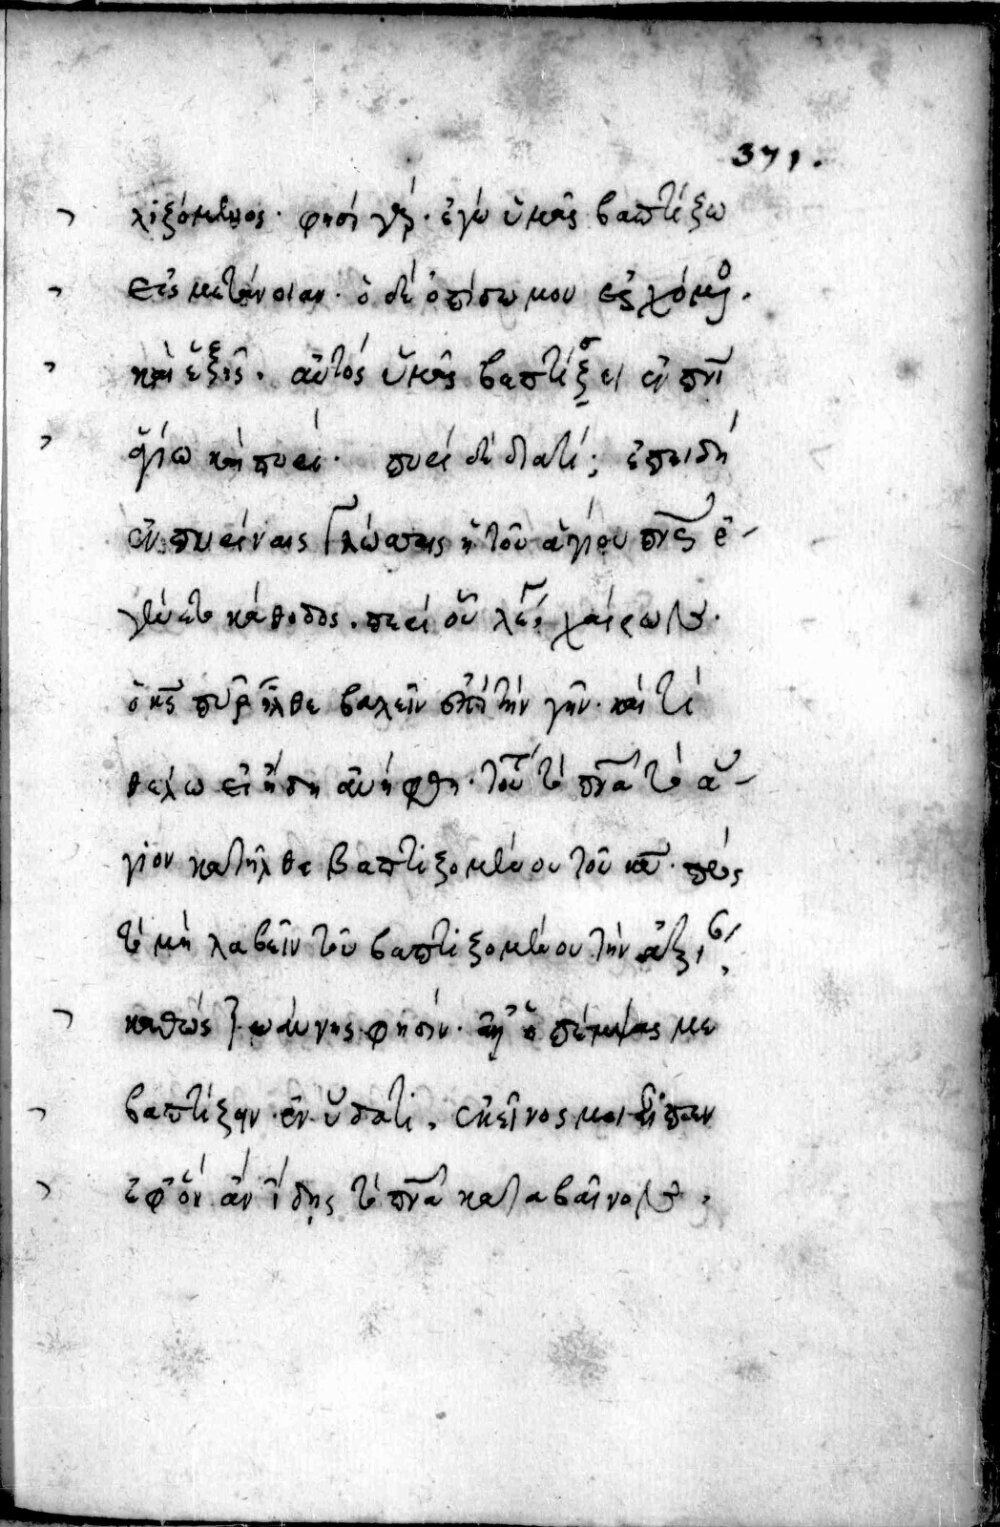 371.
λιζόμενος· φησὶ γάρ· ἐγὼ ὑμᾶς βαπτίζω
εἰς μετάνοιαν· ὁ δὲ ὀπίσω μου ἐρχόμε
καὶ ἑξῆς. αὐτὸς ὑμᾶς βαπτίσει ἐν πνι
ἁγίω καὶ πυρί· πυρὶ δὲ διατί; ἐπειδὴ
ἐν πυρίναις γλώσσαις ἡ τοῦ ἁγίου πνς ἐ-
γένετο κάθοδος. περὶ οὗ λέγει χαίρων
ὁ κς πῦρ ἦλθε βαλεῖν ἐπὶ τὴν γῆν· καὶ τί
θέλω εἰ ἤδη ἀνήφθη· τὸ πνα τὸ ἅ-
γιον κατῆλθε βαπτιζομένου τοῦ κυ· πρὸς
τὸ μὴ λαβεῖν τὸν βαπτιζομένου τὴν
καθὼς Ἰωάννης φησίν· ὁ πέμψας με
βαπτίζειν ἐν ὕδατι. ἐκεῖνος μοι εἶπεν
ἐφ ὃν ἂν ἴδης τὸ πνα καταβαῖνον.